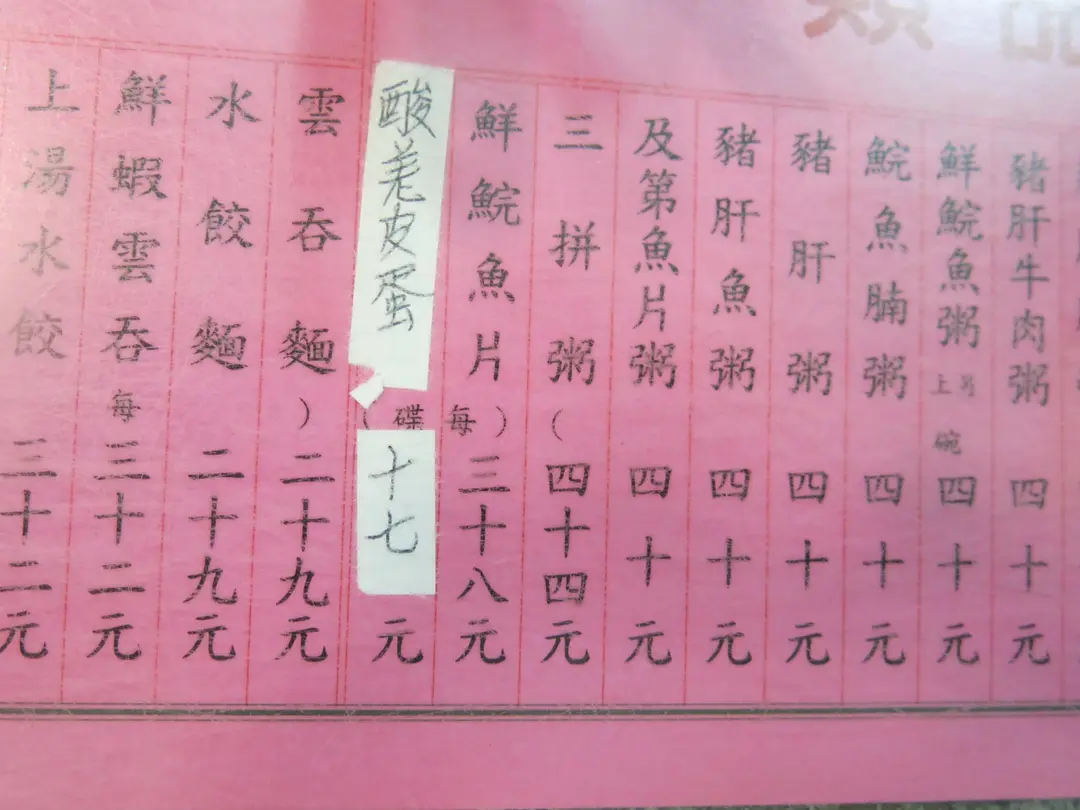 豬肝牛肉粥四十元
鮮鯇魚粥另上碗四十元
鯇魚腩粥四十元
豬肝粥四十元
豬肝魚粥四十元
及第魚片粥四十元
三拼粥（四十四元
鮮鯇魚片每）三十八元
酸羌皮蛋（碟十七元
雲吞麵）二十九元
水餃麵二十九元
鮮蝦雲吞每三十二元
上湯水餃三十二元